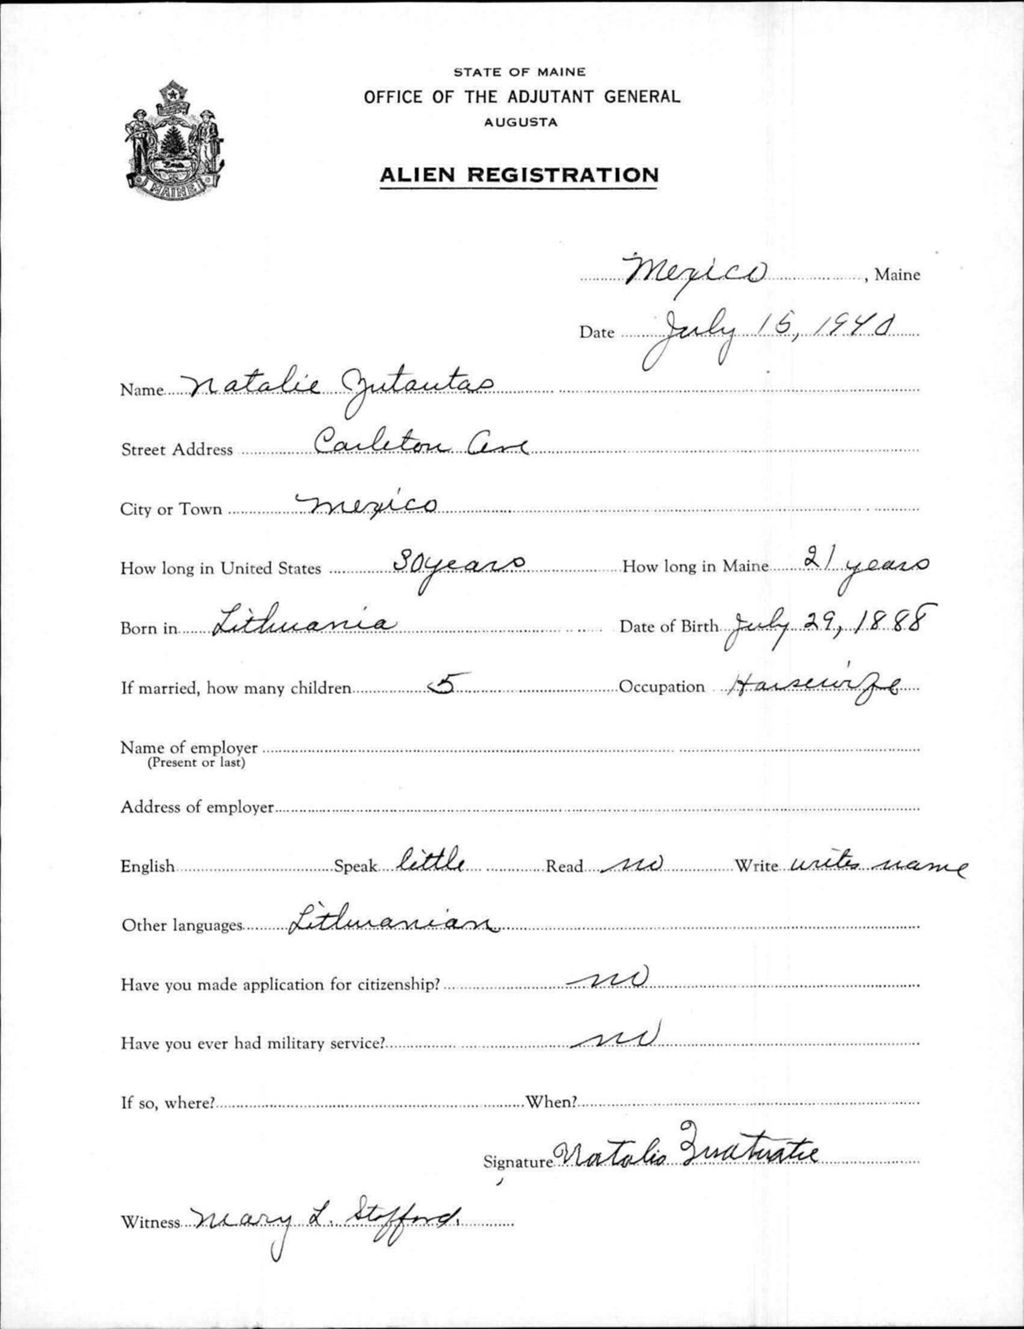 STATE OF MAINE
OFFICE OF THE ADJUTANT GENERAL
AUGUSTA
ALIEN REGISTRATION
MAINE
Mexico, Maine
Date July 15, 1940
Name Natalie Zutautas
Street Address Carleton Ave
City or Town Mexico
How long in United States 30 years How long in Maine 21 years
Born in Lithuania Date of Birth July 29, 1888
If married, how many children 5 Occupation Housewife
Name of employer
(Present or last)
Address of employer
English Speak little Read no Write writes name
Other languages Lithuanian
Have you made application for citizenship? no
Have you ever had military service? no
If so, where? When?
Signature Natalio
Witness Mary L. Stofford.